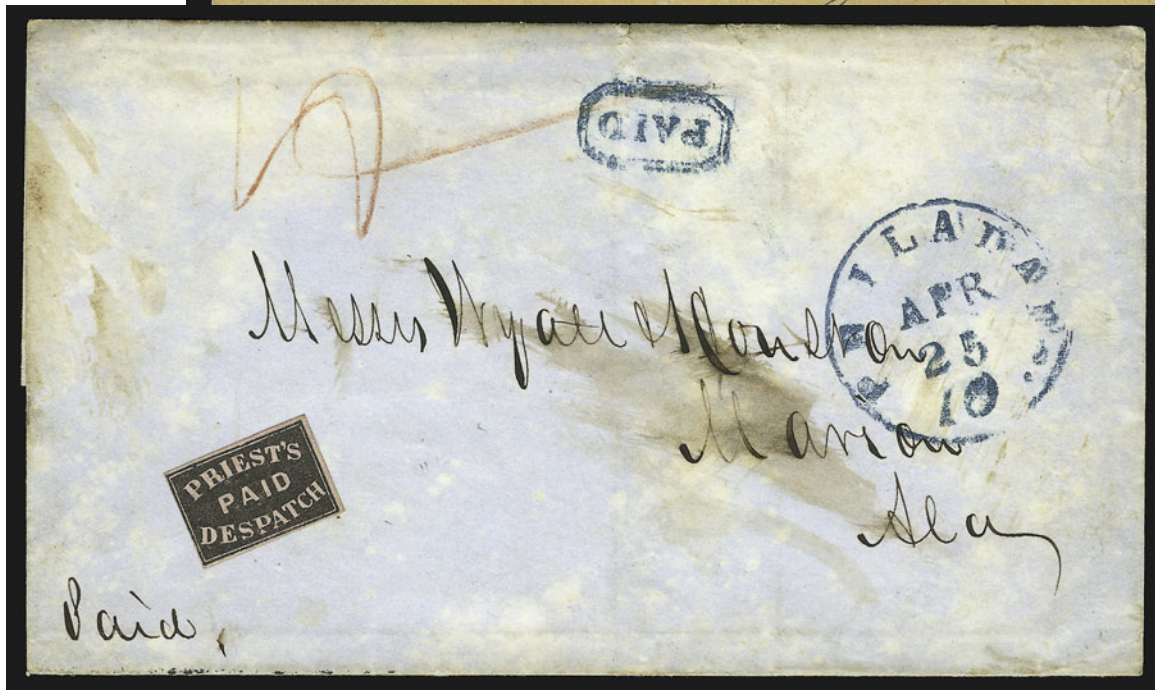 PAID
PHILADA Ps.
APR
25
10
Messrs Wyatt & Houston
Marion
Ala
PRIEST'S
PAID
DESPATCH
Paid,